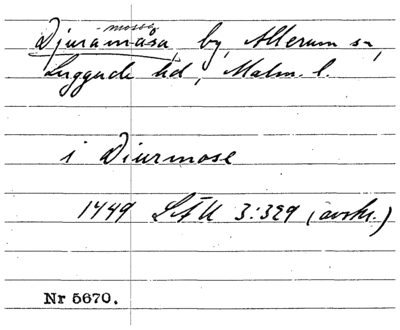 mosse
Djuramåsa, by, Allerum sn,
Luggude hd, Malm. l.
i Diurmose
1449 LÄU 3:329 (avskr.)
Nr 5670.